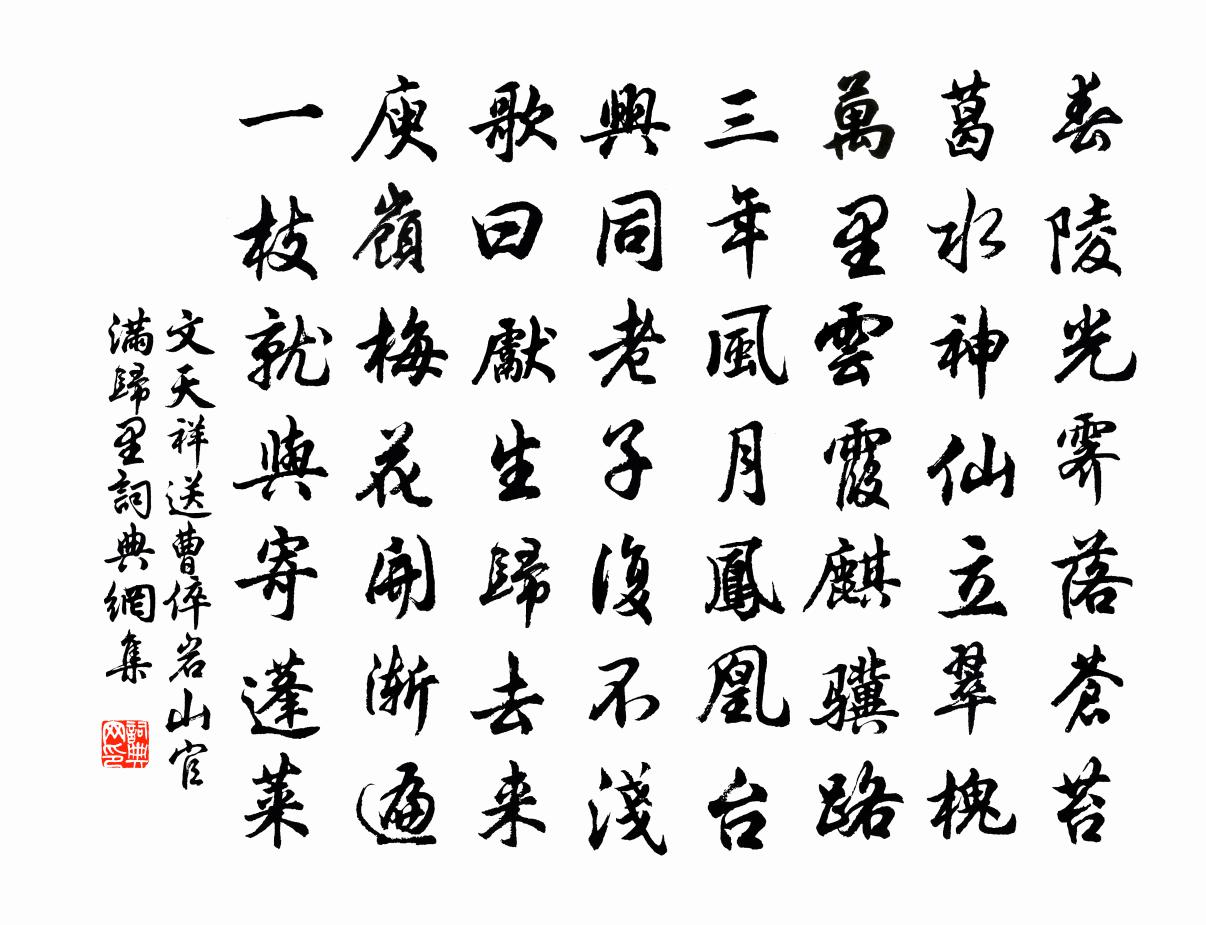 春陵光霽落蒼苔
葛水神仙立翠槐
萬里雲霞麒驥路
三年風月鳳凰台
興同老子復不淺
歌曰獻生歸去来
庾嶺梅花開漸遍
一枝就與寄蓬萊
文天祥送曹倅岩山官
滿歸里詞典網集
詞典
网印